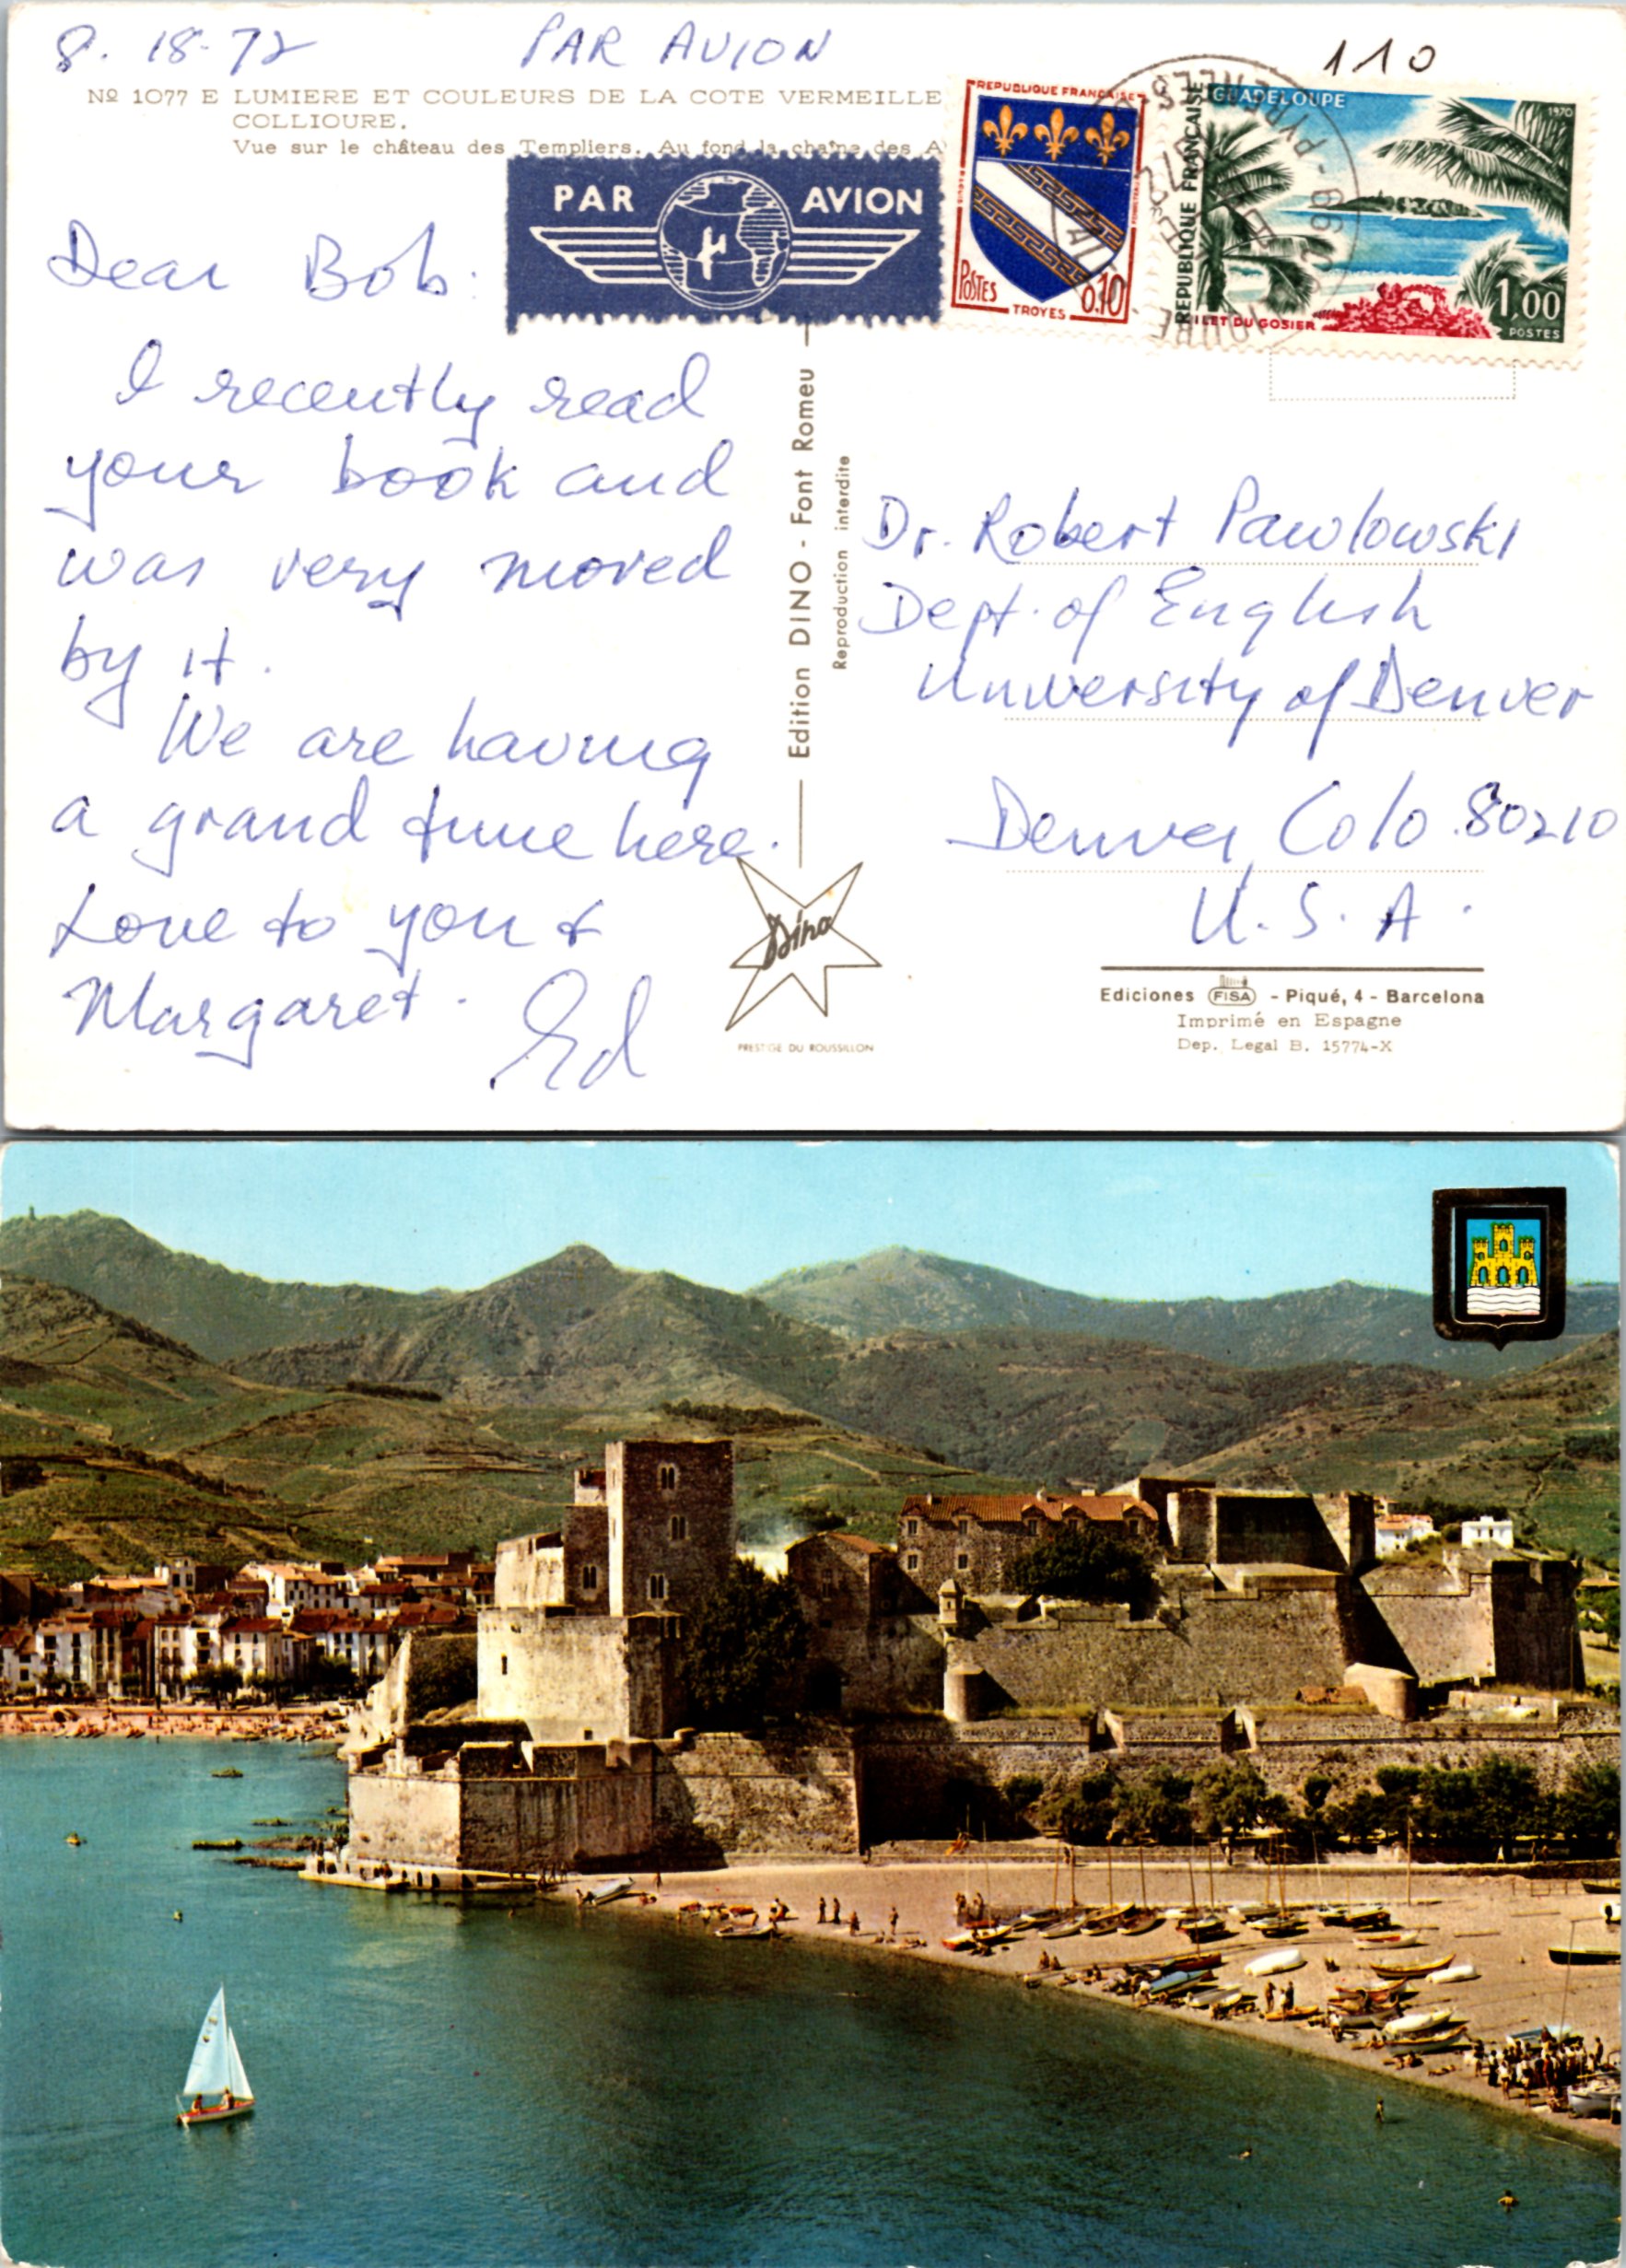 8. 18-72 PAR AVION
110
Nº 1077 E LUMIERE ET COULEURS DE LA COTE VERMEILLE
COLLIOURE.
Vue sur le château des Templiers. Au fond la chaîne des A
PAR AVION
REPUBLIQUE FRANÇAISE
POSTES
0.10
TROYES
GUADELOUPE
1970
REPUBLIQUE FRANÇAISE
ILET DU GOSIER
1,00
POSTES
Dear Bob:
I recently read
your book and
was very moved
by it.
We are having
a grand time here.
Love to you &
Margaret.
Ed
Edition DINO - Font Romeu
Reproduction interdite
Dino
PRESTIGE DU ROUSSILLON
Dr. Robert Pawlowski
Dept. of English
University of Denver
Denver, Colo. 80210
U. S. A.
Ediciones FISA - Piqué, 4 - Barcelona
Imprimé en Espagne
Dep. Legal B. 15774-X